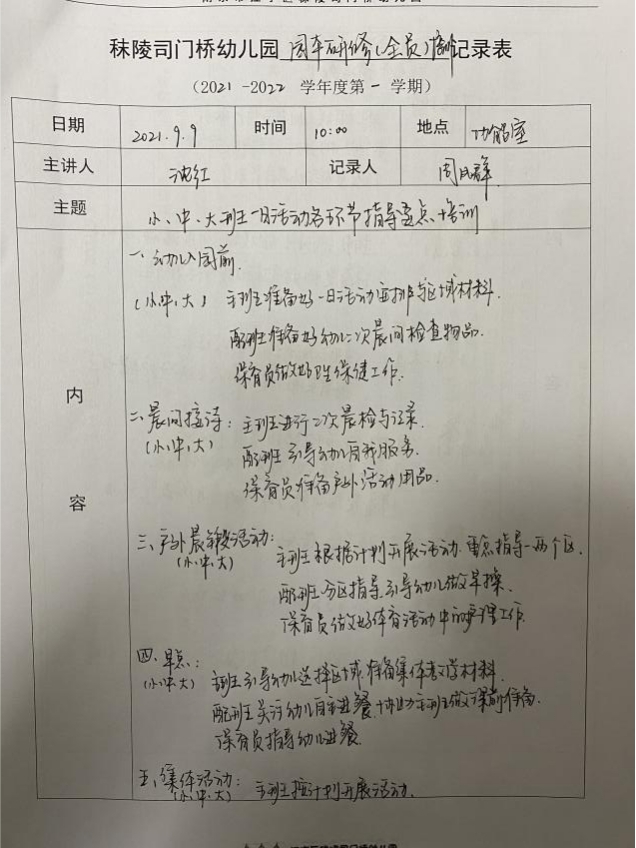 秣陵司门桥幼儿园 园本研修(全员)培训记录表
(2021 -2022 学年度第一学期)
日期 2021.9.9 时间 10:00 地点 功能室
主讲人 沈红 记录人 周
主题 小、中、大班一日活动各环节指导重点培训
内容
一、幼儿入园前.
(小中、大) 主班准备好一日活动安排与区域材料.
配班准备好幼儿二次晨间检查物品.
保育员做好卫生保健工作.
二、晨间接待: 主班进行二次晨检与记录.
(小、中、大) 配班引导幼儿自我服务.
保育员准备户外活动用品.
三、户外晨锻活动: 主班根据计划开展活动.重点指导一两个区.
(小、中、大) 配班分区指导.引导幼儿做早操.
保育员做好体育活动中的护理工作.
四、早点: 主班引导幼儿选择区域.准备集体教学材料.
(小中大) 配班关注幼儿自主进餐.协助主班做课前准备.
保育员指导幼儿进餐.
五、集体活动: 主班按计划开展活动.
(小、中、大)